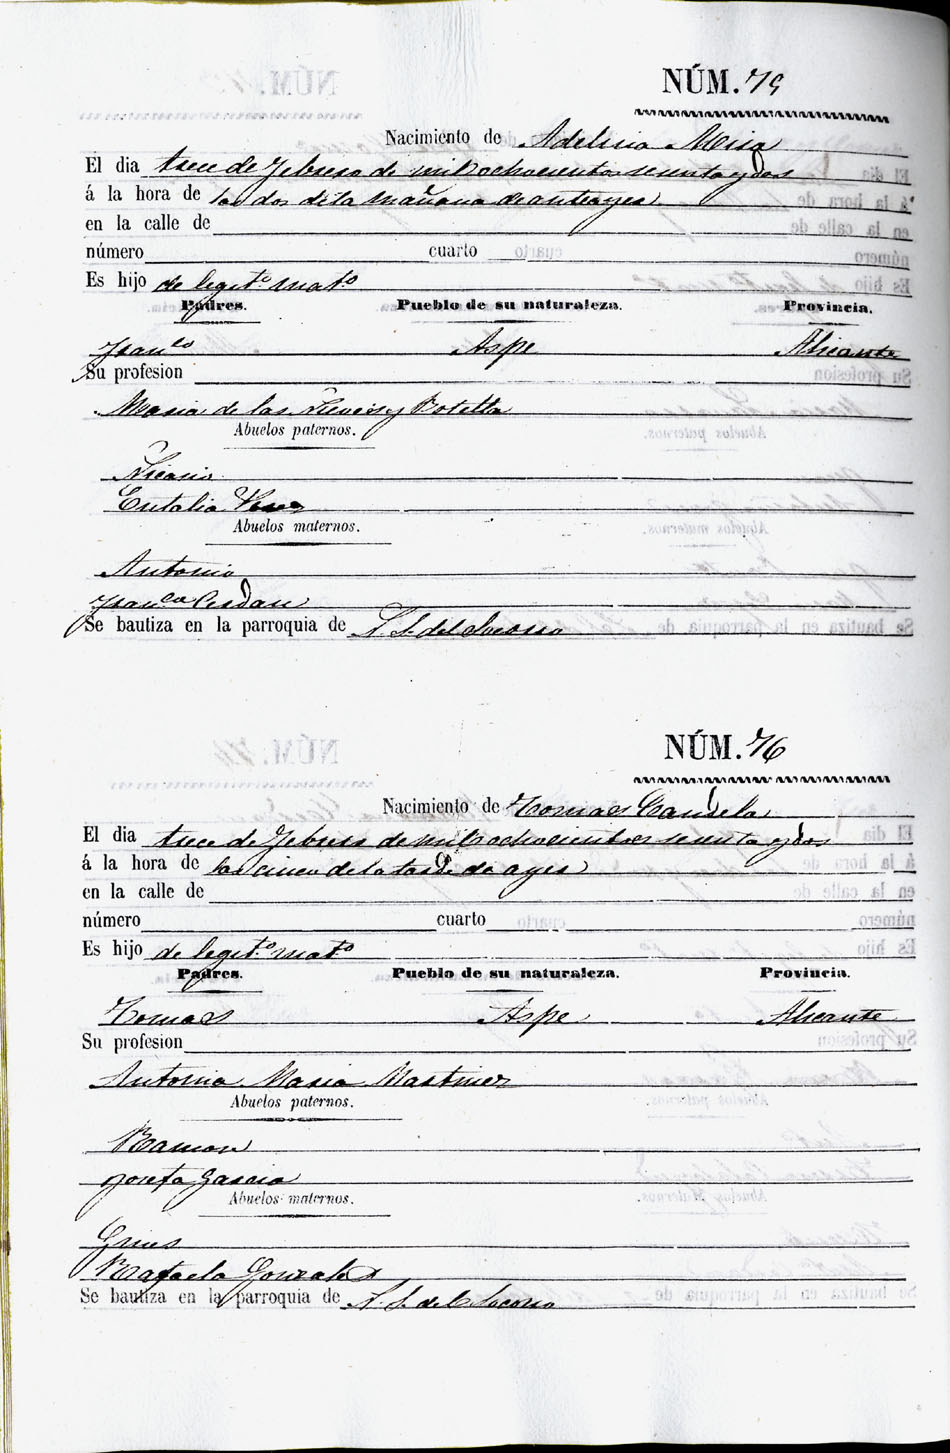 NÚM. 75
Nacimiento de Adelina Mira
El dia trece de Febrero de mil ochocientos setenta y dos
á la hora de las dos de la mañana de anteayer
en la calle de
número cuarto
Es hijo de legit.º mat.º
Padres. Pueblo de su naturaleza. Provincia.
Fran.co Aspe Alicante
Su profesion
Maria de las Nieves y Botella
Abuelos paternos.
Nicasio
Eutalia
Abuelos maternos.
Antonio
Fran.ca Cerdan
Se bautiza en la parroquia de N. S. del Socorro
NÚM. 76
Nacimiento de Tomas Candela
El dia trece de Febrero de mil ochocientos setenta y dos
á la hora de las cinco de la tarde de ayer
en la calle de
número cuarto
Es hijo de legit.º mat.º
Padres. Pueblo de su naturaleza. Provincia.
Tomas Aspe Alicante
Su profesion
Antonia Maria Martinez
Abuelos paternos.
Ramon
Josefa Garcia
Abuelos maternos.
Gines
Rafaela Gonzalez
Se bautiza en la parroquia de N. S. del Socorro